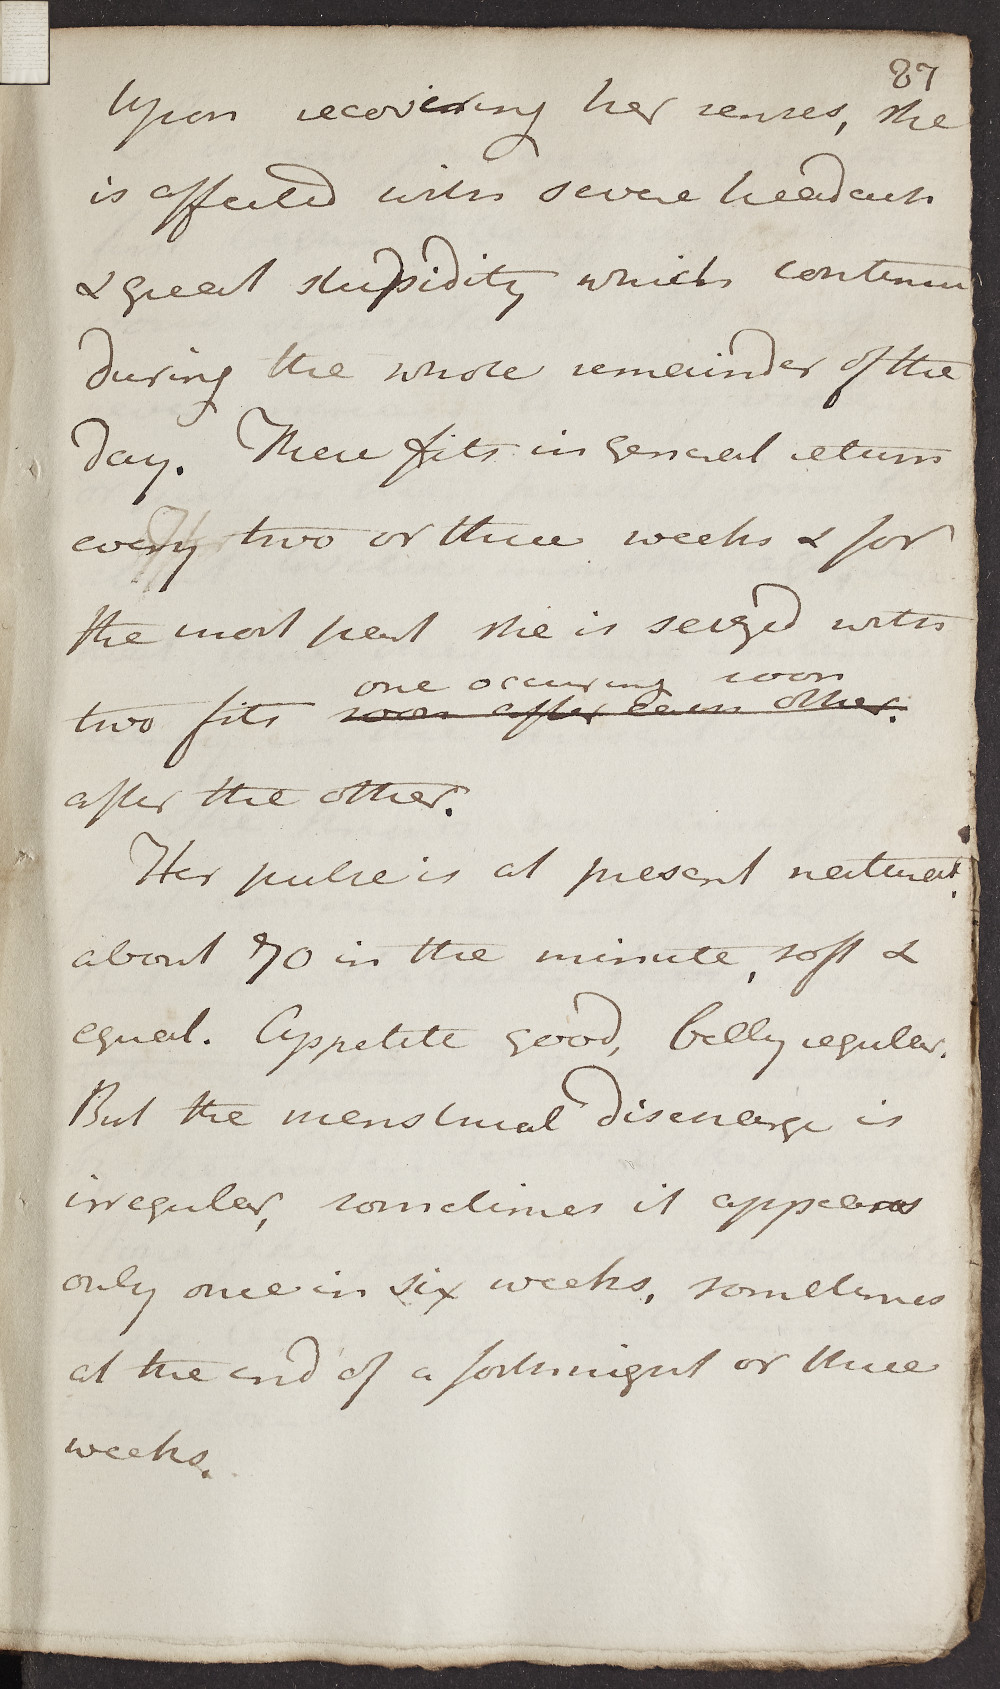 87
Upon recovering her senses, she
is affected with severe headach
& great stupidity which continue
during the whole remainder of the
day. These fits in general return
every two or three weeks & for
the most part she is seized with
one occuring soon
two fits soon after each other.
after the other.
Her pulse is at present natural,
about 70 in the minute, soft &
equal. Appetite good, belly regular.
But the menstrual discharge is
irregular, sometimes it appears
only once in six weeks, sometimes
at the end of a fortnight or three
weeks.